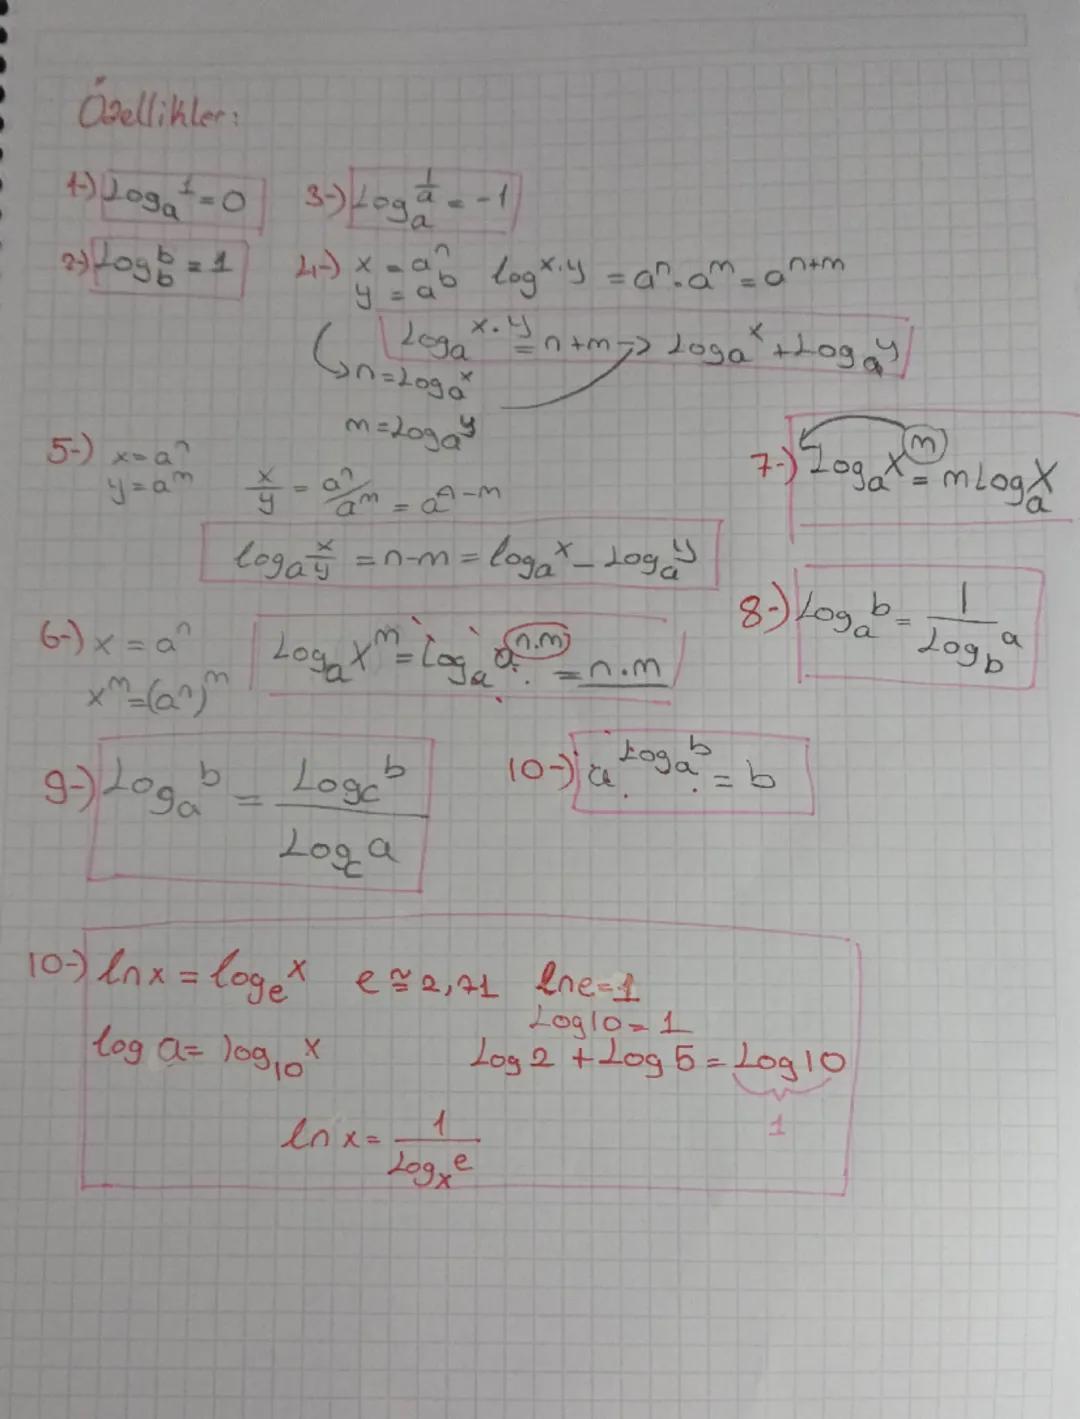 Özellikler:
1-) Log_a^1 = 0
2-) Log_b^b = 1
3-) Log_a^(1/a) = -1
4-) x = a^n
y = a^b
log^x.y = a^n . a^m = a^(n+m)
Log_a^x.y = n+m → Log_a^x + Log_a^y
n = Log_a^x
m = Log_a^y
5-) x = a^n
y = a^m
x/y = a^n/a^m = a^(n-m)
log_a x/y = n-m = log_a^x - Log_a^y
6-) x = a^n
x^m = (a^n)^m
Log_a x^m = Log_a a^(n.m) = n.m
7-) Log_a x^m = m Log_a x
8-) Log_a^b = 1/Log_b^a
9-) Log_a^b = Log_c^b / Log_c a
10-) a^(Log_a^b) = b
10-) ln x = log_e^x e ≅ 2,71 ln e = 1
Log10 = 1
log a = log_10^x Log 2 + Log 5 = Log 10
1
ln x = 1/Log_x^e